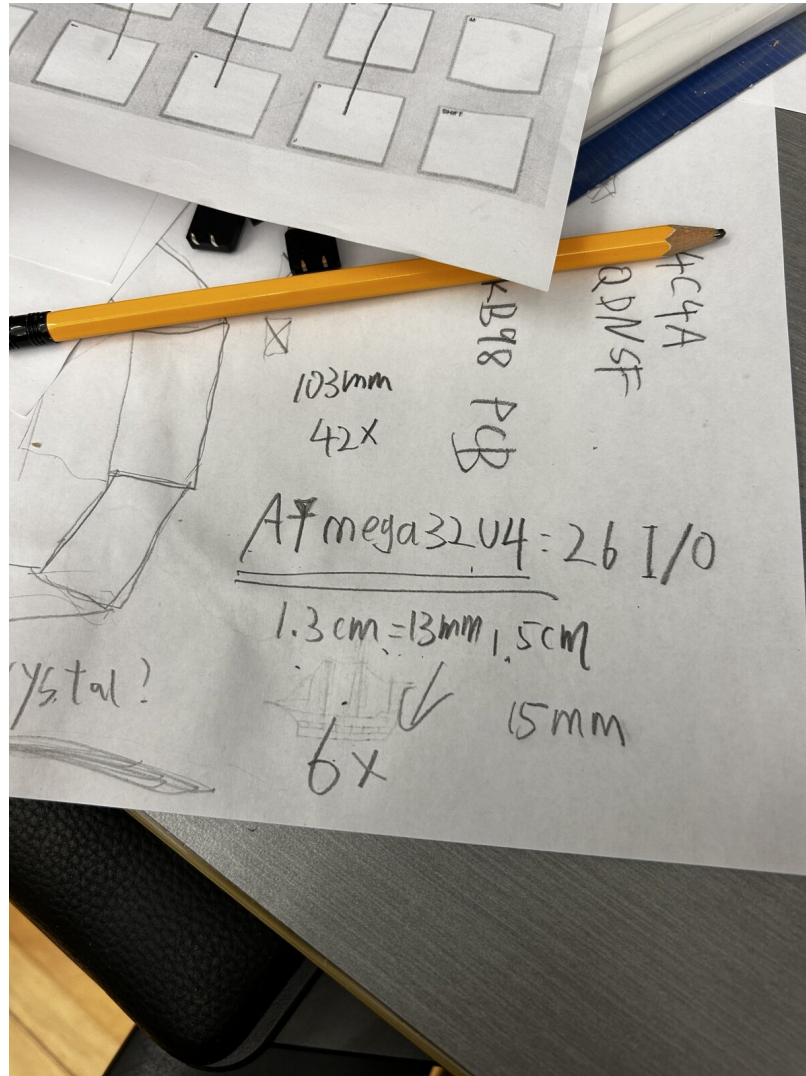 SHIFT
4C4A
QDNSF
KB98 PCB
103mm
42x
ATmega32U4 = 26 I/O
1.3cm = 13mm 1.5cm
15mm
6x
rystal?